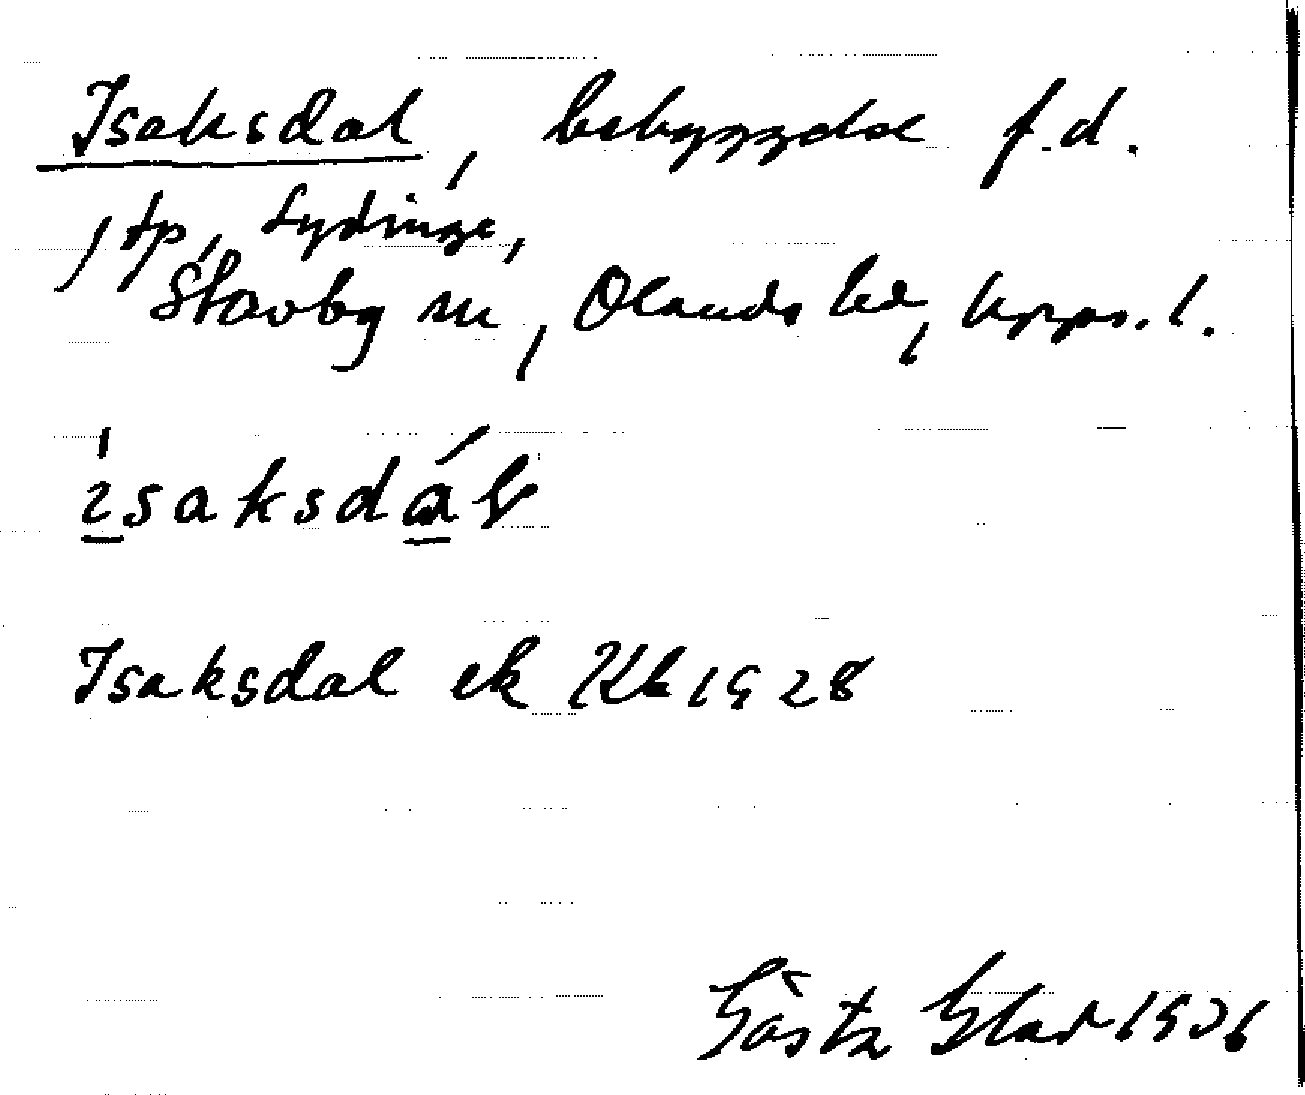 Isaksdal, bebyggelse f.d.
, tp, Lydinge,
Stavby sn, Olands hd, Upps. l.
ìsaksdál
Isaksdal ek Kbl 1928
Gösta Elar 1936